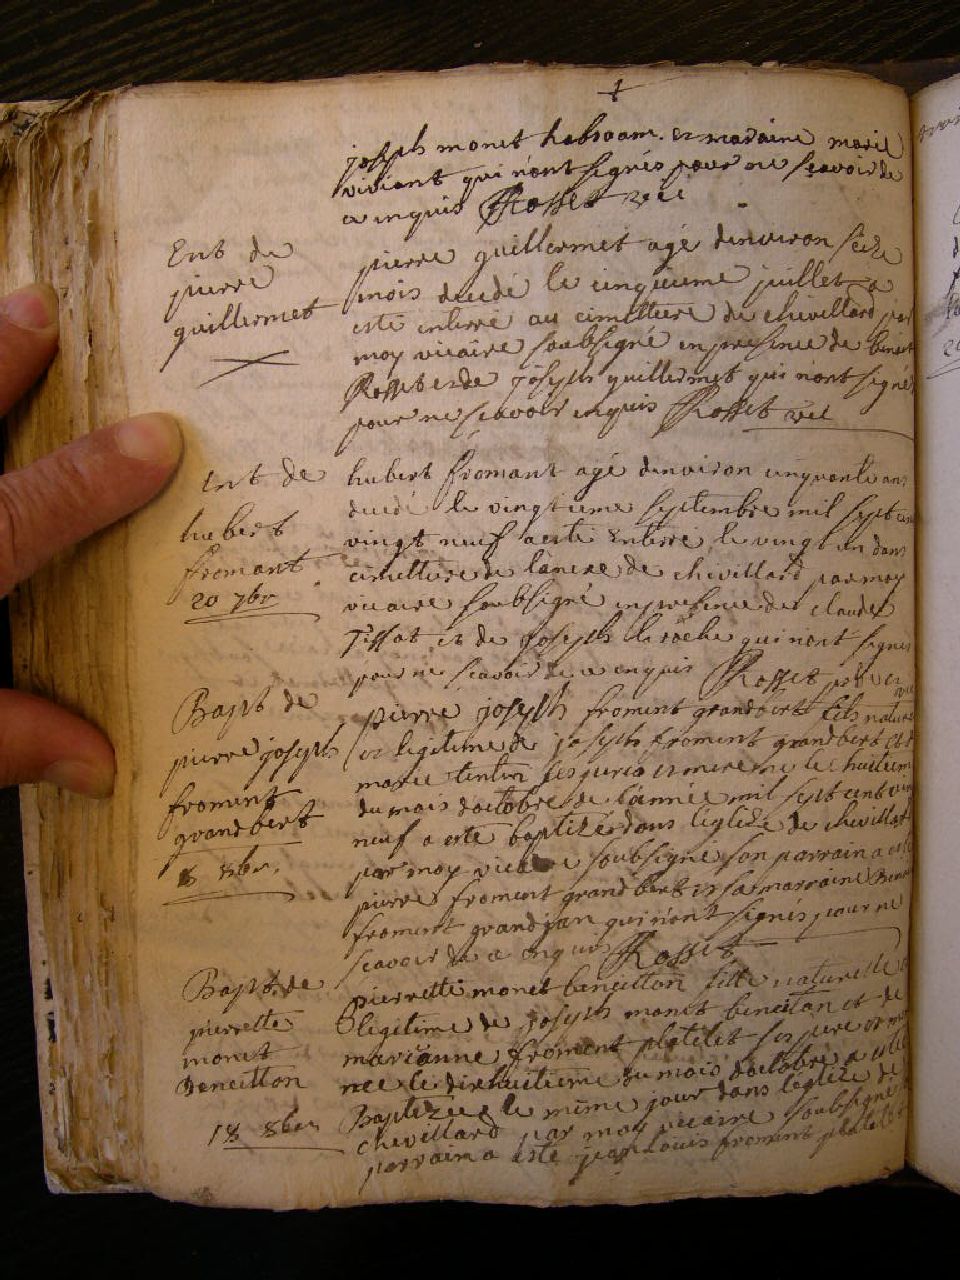 joseph monet habraam et maraine marie
viviant qui n'ont signés pour ne scavoir de
ce inquis Rosset vic
Ent de
pierre
guillermet
pierre guillermet agé denviron seize
mois decedé le cinquieme juillet a
esté enterré au cimettiere de chevillard par
moy vicaire soubsigné en presence de benoit
Rosset et de joseph guillermet qui n'ont signé
pour ne scavoir inquis Rosset vic
Ent de
hubert
fromant
20 7br
hubert fromant agé denviron cinquante ans
decedé le vingtieme septembre mil sept cent
vingt neuf a esté enterré le vingt un dans
cimettiere de de chevillard par moy
vicaire soubsigné en presence de claude
Tissot et de joseph qui n'ont signes
pour ne scavoir de ce enquis Rosset
Bapt de
pierre joseph
froment
grandbert
8 8br.
pierre joseph froment grandbert fils naturel
et legitime de joseph froment grandbert et de
marie ses pere et mere ne le huitieme
du mois doctobre de l'année mil sept cent vin
neuf a esté baptizé dans l'eglize de chevillard
par moy vicaire soubsigné son parrain a esté
pierre froment grandbert et sa marraine
froment grandjan qui n'ont signés pour ne
scavoir de ce enquis Rosset
Bapt. de
pierrette
monet
Beneitton
18 8br
pierrette monet beneitton fille naturelle
legitime de joseph monet beneitton et de
marianne froment platelet ses pere et mere
nee le dixhuitieme du mois doctobre a esté
Baptizée le même jour dans l'eglize de
chevillard par moy vicaire soubsigné
parrain a esté jean Louis froment